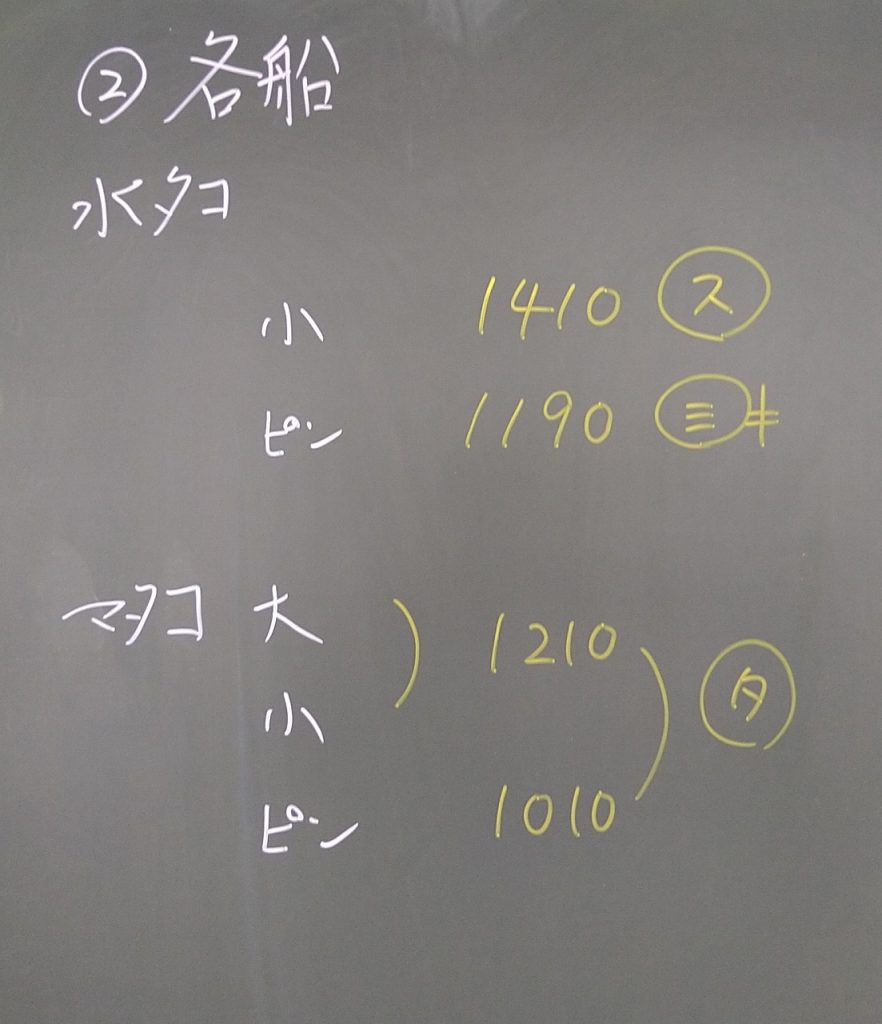 ② 各船
水タコ
小 1410 ㋜
ピン 1190 ㊂キ
マタコ 大 ) 1210
小 ) ㋟
ピン 1010